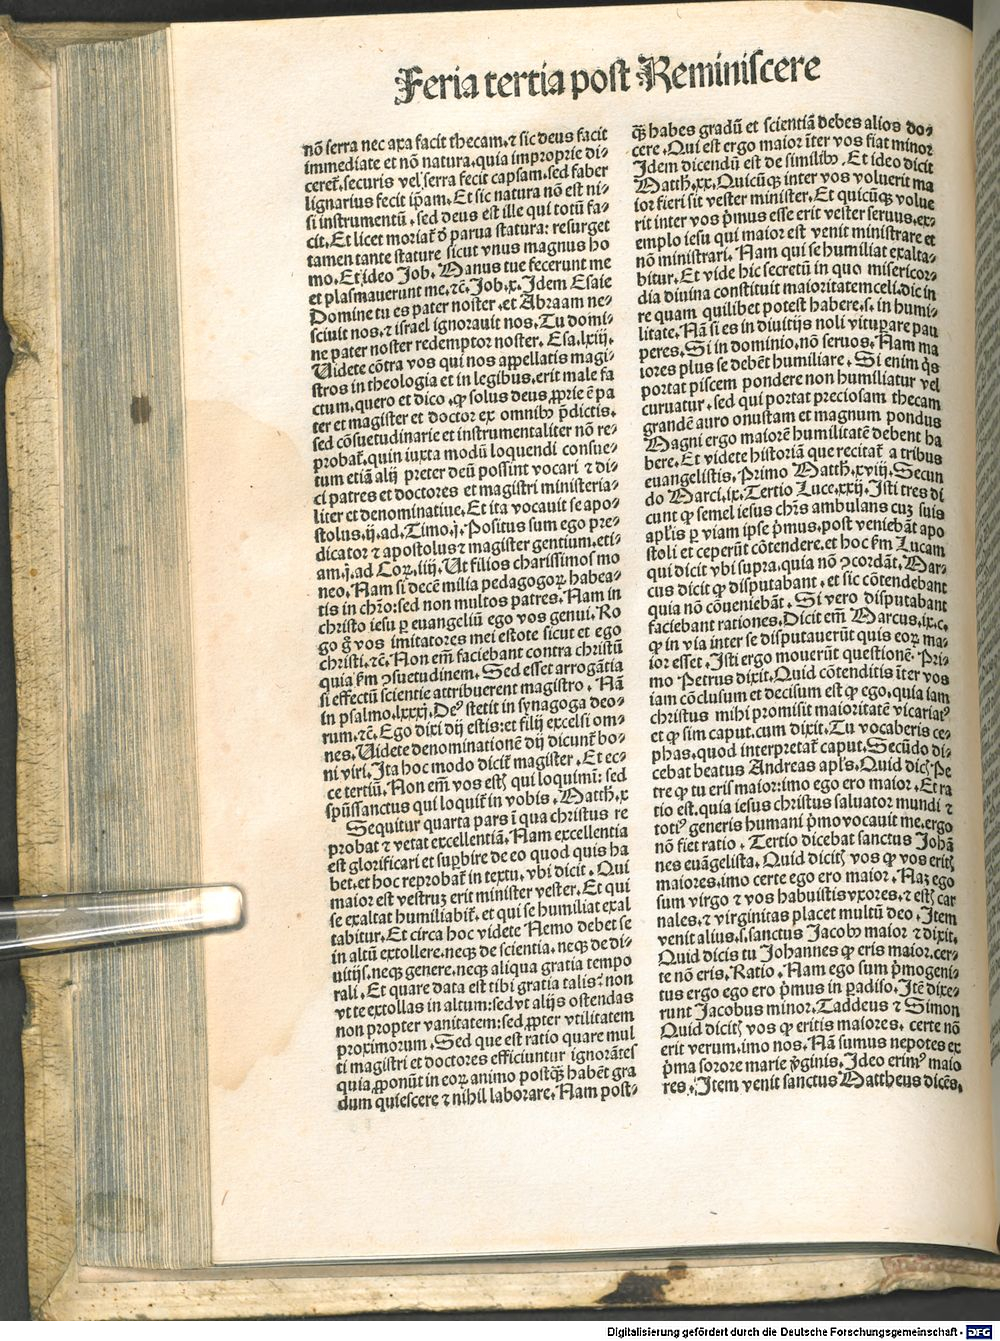 Feria tertia post Reminiscere
nō serra nec axa facit thecam.⁊ sic deus facit
immediate et nō natura.quia improprie di⸗
ceret̄.securis vel serra fecit capsam.sed faber
lignarius fecit ip̄am.Et sic natura nō est ni⸗
si instrumentū.sed deus est ille qui totū fa⸗
cit.Et licet moriat̄ ō parua statura: resurget
tamen tante stature sicut vnus magnus ho
mo.Et ideo Job.Manus tue fecerunt me
et plasmauerunt me.⁊c̄.Job.x.Idem Esaie
Domine tu es pater noster.et Abraam ne⸗
sciuit nos.⁊ israel ignorauit nos.Tu domi⸗
ne pater noster redemptor noster.Esa.lxiij.
Uidete cōtra vos qui nos appellatis magi⸗
stros in theologia et in legibus.erit male fa
ctum.quero et dico.ꝙ solus deus ꝓprie ē pa
ter et magister et doctor ex omnibꝰ p̄dictis.
sed cōsuetudinarie et instrumentaliter nō re⸗
probat̄.quin iuxta modū loquendi consue⸗
tum etiā alij preter deū possunt vocari ⁊ di⸗
ci patres et doctores et magistri ministeria⸗
liter et denominatiue.Et ita vocauit se apo⸗
stolus.ij.ad.Timo.j.Positus sum ego pre⸗
dicator ⁊ apostolus ⁊ magister gentium.eti⸗
am.j.ad Coꝝ.iiij.Ut filios charissimos mo
neo.Nam si decē milia pedagogoꝝ habea⸗
tis in chr̄o:sed non multos patres.Nam in
christo iesu ꝑ euangeliū ego vos genui.Ro
go g̊ vos imitatores mei estote sicut et ego
christi.⁊c̄.Non em̄ faciebant contra christū
quia ẜm ꝯsuetudinem.Sed esset arrogātia
si effectū scientie attribuerent magistro.Nā
in psalmo.lxxxj.Deꝰ stetit in synagoga deo⸗
rum.⁊c̄.Ego dixi dij estis:et filij excelsi om⸗
nes.Uidete denominationē dij dicunt̄ bo⸗
ni viri.Ita hoc modo dicit̄ magister.Et ec⸗
ce tertiū.Non em̄ vos estꝭ qui loquimī: sed
spūssanctus qui loquit̄ in vobis.Matth̄.x
Sequitur quarta pars ī qua christus re
probat ⁊ vetat excellentiā.Nam excellentia
est glorificari et suꝑbire de eo quod quis ha
bet.et hoc reprobat̄ in textu.vbi dicit.Qui
maior est vestruꝫ erit minister vester.Et qui
se exaltat humiliabit̄.et qui se humiliat exal
tabitur.Et circa hoc videte Nemo debet se
in altū extollere.neqꝫ de scientia.neqꝫ de di⸗
uitijs.neqꝫ genere.neqꝫ aliqua gratia tempo
rali.Et quare data est tibi gratia talis? non
vt te extollas in altum:sed vt alijs ostendas
non propter vanitatem:sed ꝓpter vtilitatem
proximorum.Sed que est ratio quare mul
ti magistri et doctores efficiuntur ignorātes
quia ꝓponūt in eoꝝ animo postqꝫ̄ habēt gra
dum quiescere ⁊ nihil laborare.Nam post⸗
qꝫ̄ habes gradū et scientiā debes alios do⸗
cere.Qui est ergo maior īter vos fiat minor
Idem dicendū est de similibꝰ.Et ideo dicit
Matth̄.xx.Quicūqꝫ inter vos voluerit ma
ior fieri sit vester minister.Et quicūqꝫ volue
rit inter vos p̄mus esse erit vester seruus.ex⸗
emplo iesu qui maior est venit ministrare et
nō ministrari.Nam qui se humiliat exalta⸗
bitur.Et vide hic secretū in quo misericor⸗
dia diuina constituit maioritatem celi.dic in
re quam quilibet potest habere.s.in humi⸗
litate.Nā si es in diuitijs noli vituꝑare pau
peres.Si in dominio.nō seruos.Nam ma
iores plus se debēt humiliare.Si enim q̇s
portat piscem pondere non humiliatur vel
curuatur.sed qui portat preciosam thecam
grandē auro onustam et magnum pondus
Magni ergo maiorē humilitatē debent ha
bere.Et videte historiā que recitat̄ a tribus
euangelistis.Primo Matth̄.xviij.Secun
do Marci.ix.Tertio Luce.xxij.Isti tres di
cunt ꝙ semel iesus chr̄s ambulans cuꝫ suis
apl̄is ꝑ viam ipse p̄mus.post veniebāt apo
stoli et ceperūt cōtendere.et hoc ẜm Lucam
qui dicit vbi supra.quia nō ꝯcordāt.Mar⸗
cus dicit ꝙ disputabant.et sic cōtendebant
quia nō cōueniebāt.Si vero disputabant
faciebant rationes.Dicit em̄ Marcus.ix.c.
ꝙ in via inter se disputauerūt quis eoꝝ ma⸗
ior esset.Isti ergo mouerūt questionē.Pri⸗
mo Petrus dixit.Quid cōtenditis īter vos
iam cōclusum et decisum est ꝙ ego.quia iam
christus mihi promisit maioritatē vicariatꝰ
et ꝙ sim caput.cum dixit.Tu vocaberis ce⸗
phas.quod interpretat̄ caput.Secūdo di⸗
cebat beatus Andreas apl̄s.Quid dicꝭ Pe
tre ꝙ tu eris maior:imo ego ero maior.Et ra
tio est.quia iesus christus saluator mundi ⁊
totiꝰ generis humani p̄mo vocauit me.ergo
nō fiet ratio.Tertio dicebat sanctus Johā
nes euāgelista.Quid dicitꝭ vos ꝙ vos eritꝭ
maiores.imo certe ego ero maior.Naꝫ ego
sum virgo ⁊ vos habuistis vxores.⁊ estꝭ car
nales.⁊ virginitas placet multū deo.Item
venit alius.s.sanctus Jacobꝰ maior ⁊ dixit.
Quid dicis tu Johannes ꝙ eris maior.cer⸗
te nō eris.Ratio.Nam ego sum p̄mogeni⸗
tus ergo ego ero p̄mus in ꝑadiso.Itē dixe⸗
runt Jacobus minor.Taddeus ⁊ Simon
Quid dicitꝭ vos ꝙ eritis maiores. certe nō
erit verum.imo nos.Nā sumus nepotes ex
p̄ma sorore marie v̓ginis.Ideo erimꝰ maio
res.Item venit sanctus Mattheus dicēs.
Digitalisierung gefördert durch die Deutsche Forschungsgemeinschaft - DFG